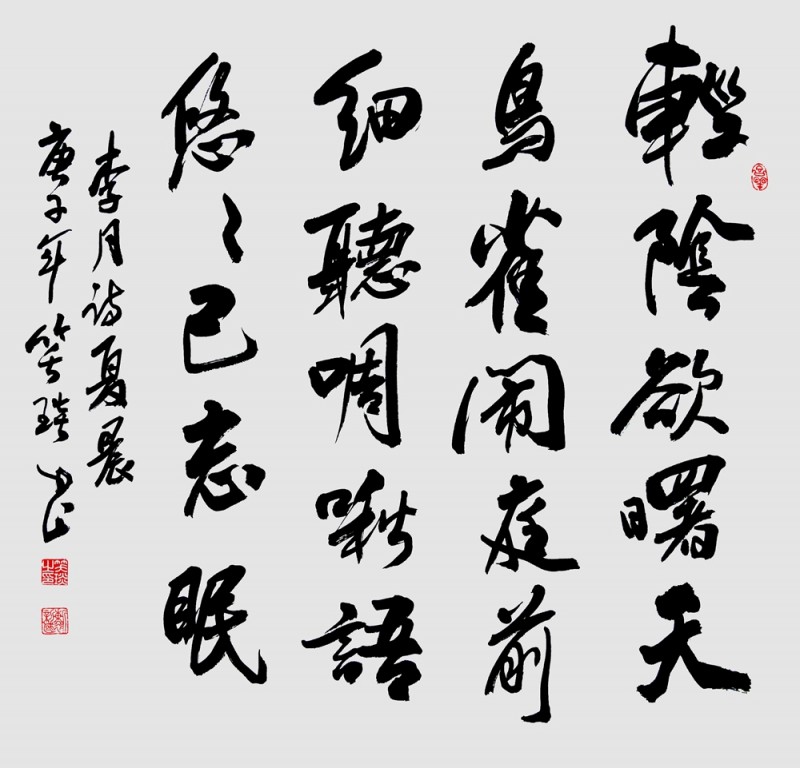 輕陰欲曙天
鳥雀闹庭前
細聽啁啾語
悠〻已忘眠
李月诗夏晨
庚子年笑琰书